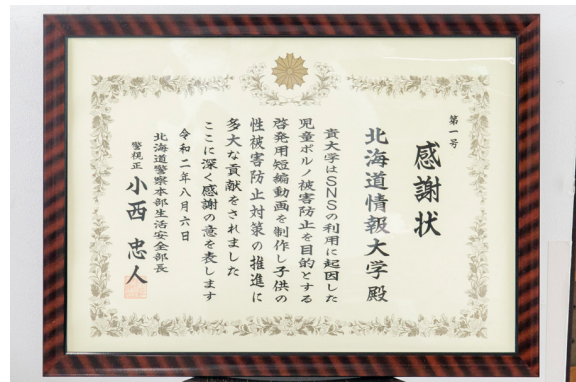 第一号
感謝状
北海道情報大学殿
貴大学はSNSの利用に起因した
児童ポルノ被害防止を目的とする
啓発用短編動画を制作し子供の
性被害防止対策の推進に
多大な貢献をされました
ここに深く感謝の意を表します
令和二年八月六日
北海道警察本部生活安全部長
警視正 小西忠人